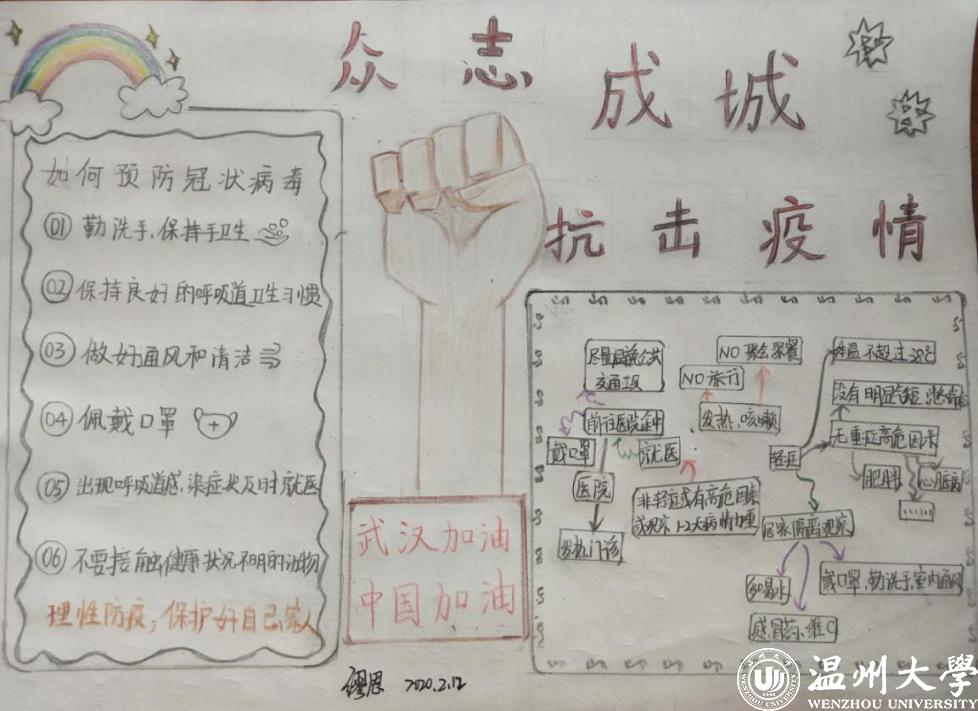 众志成城
抗击疫情
如何预防冠状病毒
01 勤洗手、保持手卫生
02 保持良好的呼吸道卫生习惯
03 做好通风和清洁
04 佩戴口罩
05 出现呼吸道感染症状及时就医
06 不要接触健康状况不明的动物
理性防疫，保护好自己家人
武汉加油
中国加油
缪思 2020.2.12
尽量避免公共
交通工具
前往医院途中
戴口罩
就医
医院
发热门诊
NO 聚会聚餐
NO 旅行
发热、咳嗽
非轻症或有高危因素
或观察1-2天病情加重
轻症
体温不超过38℃
没有明显气短、憋气
无重症高危因未
肥胖
心脏病
……
居家隔离观察
多喝水
感冒药、维C
戴口罩，勤洗手，室内通风
温州大学
WENZHOU UNIVERSITY